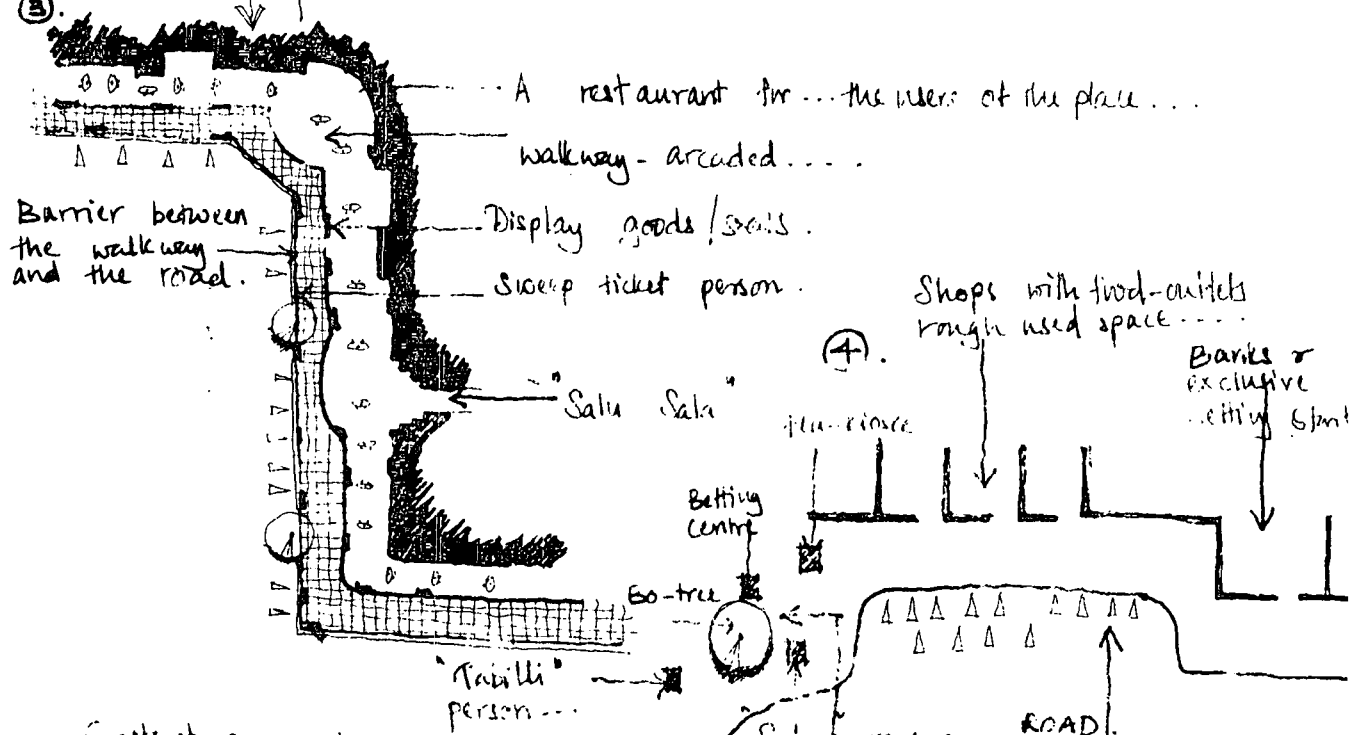 3.
A restaurant for... the users of the place...
walkway - arcaded.....
Barrier between
the walkway
and the road.
Display goods /
Sweep ticket person.
"Salu Sala"
4.
Shops with food-outlets
rough used space.....
Banks &
exclusive
Betting
centre
Bo-tree
person...
ROAD